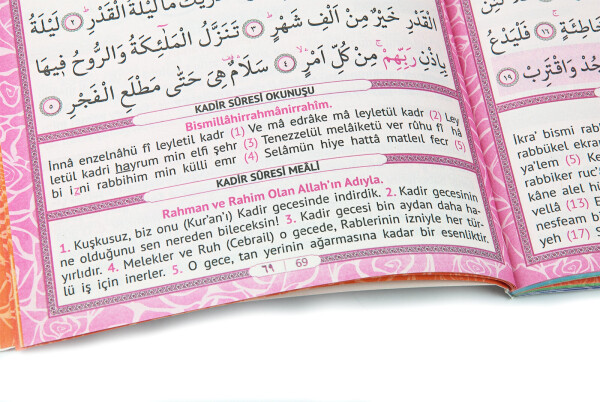 الْقَدْرِ خَيْرٌ مِنْ اَلْفِ شَهْرٍ ﴿٣﴾ تَنَزَّلُ الْمَلٰٓئِكَةُ وَالرُّوحُ فِيهَا
بِاِذْنِ رَبِّهِمْ مِنْ كُلِّ اَمْرٍ ﴿٤﴾ سَلَامٌ هِىَ حَتّٰى مَطْلَعِ الْفَجْرِ ﴿٥﴾
KADİR SÛRESİ OKUNUŞU
Bismillâhirrahmânirrahîm.
İnnâ enzelnâhü fî leyletil kadr (1) Ve mâ edrâke mâ leyletül kadr (2) Ley
letül kadri hayrum min elfi şehr (3) Tenezzelül melâiketü ver rûhu fî hâ
bi izni rabbihim min külli emr (4) Selâmün hiye hattâ matleil fecr (5)
KADİR SÛRESİ MEÂLİ
Rahman ve Rahim Olan Allah'ın Adıyla.
1. Kuşkusuz, biz onu (Kur'an'ı) Kadir gecesinde indirdik. 2. Kadir gecesinin
ne olduğunu sen nereden bileceksin! 3. Kadir gecesi bin aydan daha ha-
yırlıdır. 4. Melekler ve Ruh (Cebrail) o gecede, Rablerinin izniyle her tür-
lü iş için inerler. 5. O gece, tan yerinin ağarmasına kadar bir esenliktir.
٦٩ 69
فَلْيَدْعُ
وَاقْتَرِبْ ﴿١٩﴾
Ikra' bismi rabb
rabbükel ekram
ya'lem (5) Ke
rabbike ruc'
yellâ (13) E
nesfeam b
yeh (17) S